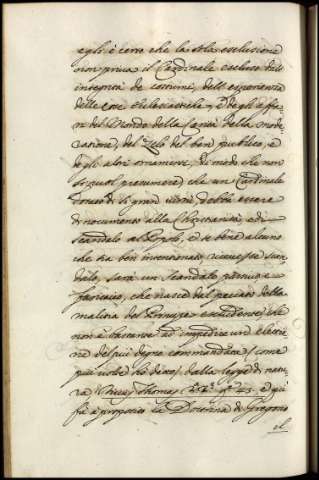 egli è certo che la sola esclusione
non priva il Cardinale escluso dell'
integrità de costumi, dell'esperienza
delle cose Ecclesiastiche, e degli affa-
ri del Mondo della Santa della mode-
razione, del Zelo del ben publico, e
degli altri ornamenti, di modo che non
si può presumere che un Cardinale
dotato di sì gran virtù debba essere
di nocumento alla Christianità, e di
scandalo al Popolo, e se bene alcuno
che ha ben intenzionato ricevesse scan-
dalo, sarà un scandalo
, che nasce dal peccato della
malizia del Prencipe escludente che
non è bastante ad impedire una elezio-
ne del più degno commandata (come
più volte ho detto) dalla legge di natu-
ra Thomas e quì
fà a proposito la Dottrina di Gregorio
il